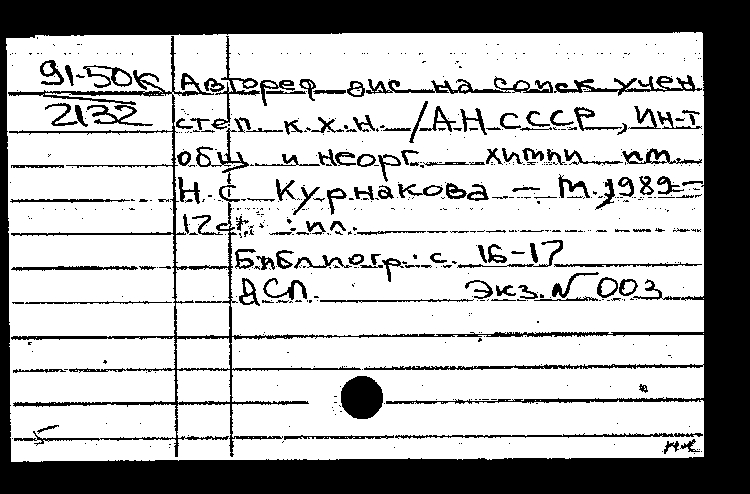 91-50К Автореф дис на соиск учен
2132 степ. к.х.н. /АН СССР, Ин-т
общ и неорг. химии им.
Н.С Курнакова – М., 1989 –
17 с. : ил.
Библиогр.: с. 16-17
ДСП. Экз. № 003
5